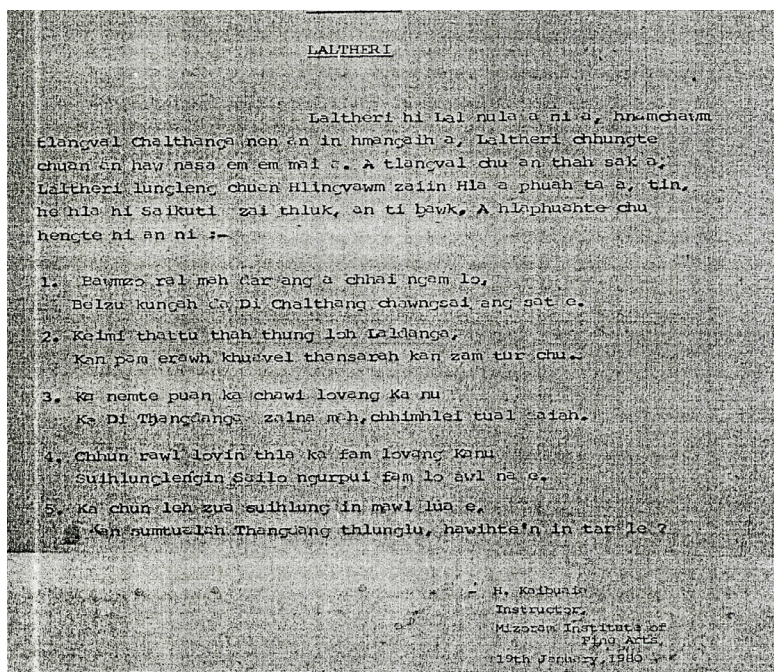 LALTHERI
Laltheri hi Lal nula a ni a, hnamchawm
tlangval Chalthanga nen an in hmangaih a, Laltheri chhungte
chuan an haw nasa em em mai a. A tlangval chu an thah sak a,
Laltheri lungleng chuan Hlingvawm zaiin Hla a phuah ta a, tin,
he hla hi Saikuti zai thluk, an ti bawk, A hlaphuahte chu
hengte hi an ni :-
1. Bawmzo ral mah dar ang a chhai ngam lo,
Belzu kungah Ka Di Chalthang chawngsai ang sat e.
2. Keimi thattu thah thung loh Laldanga,
Kan pam erawh khuavel thansarah kan zam tur chu.
3. Ka nemte puan ka chawi lovang Ka nu
Ka Di Thangdanga zalna mah, chhimhlei tual saiah.
4. Chhun rawl lovin thla ka fam lovang Kanu
Suihlunglengin Sailo ngurpui fam lo awl na e.
5. Ka chun leh zua suihlung in mawl lua e,
Kan sumtualah Thangdang thlunglu, hawihte'n in tar le ?
- H. Kaibuaia
Instructor,
Mizoram Institute of
Fine Arts
19th January, 1980